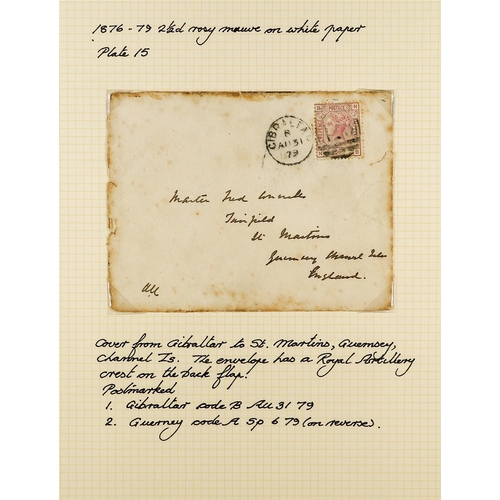 1876-79 2½d rosy mauve on white paper
Plate 15
GIBRALTAR
B
AU 31
79
Master Fred
Fairfield
St Martins
Guernsey Channel Isles
England.
Cover from Gibraltar to St. Martins, Guernsey,
Channel Is. The envelope has a Royal Artillery
crest on the back flap.
Postmarked
1. Gibraltar code B AU 31 79
2. Guerney code A Sp 6 79 (on reverse).